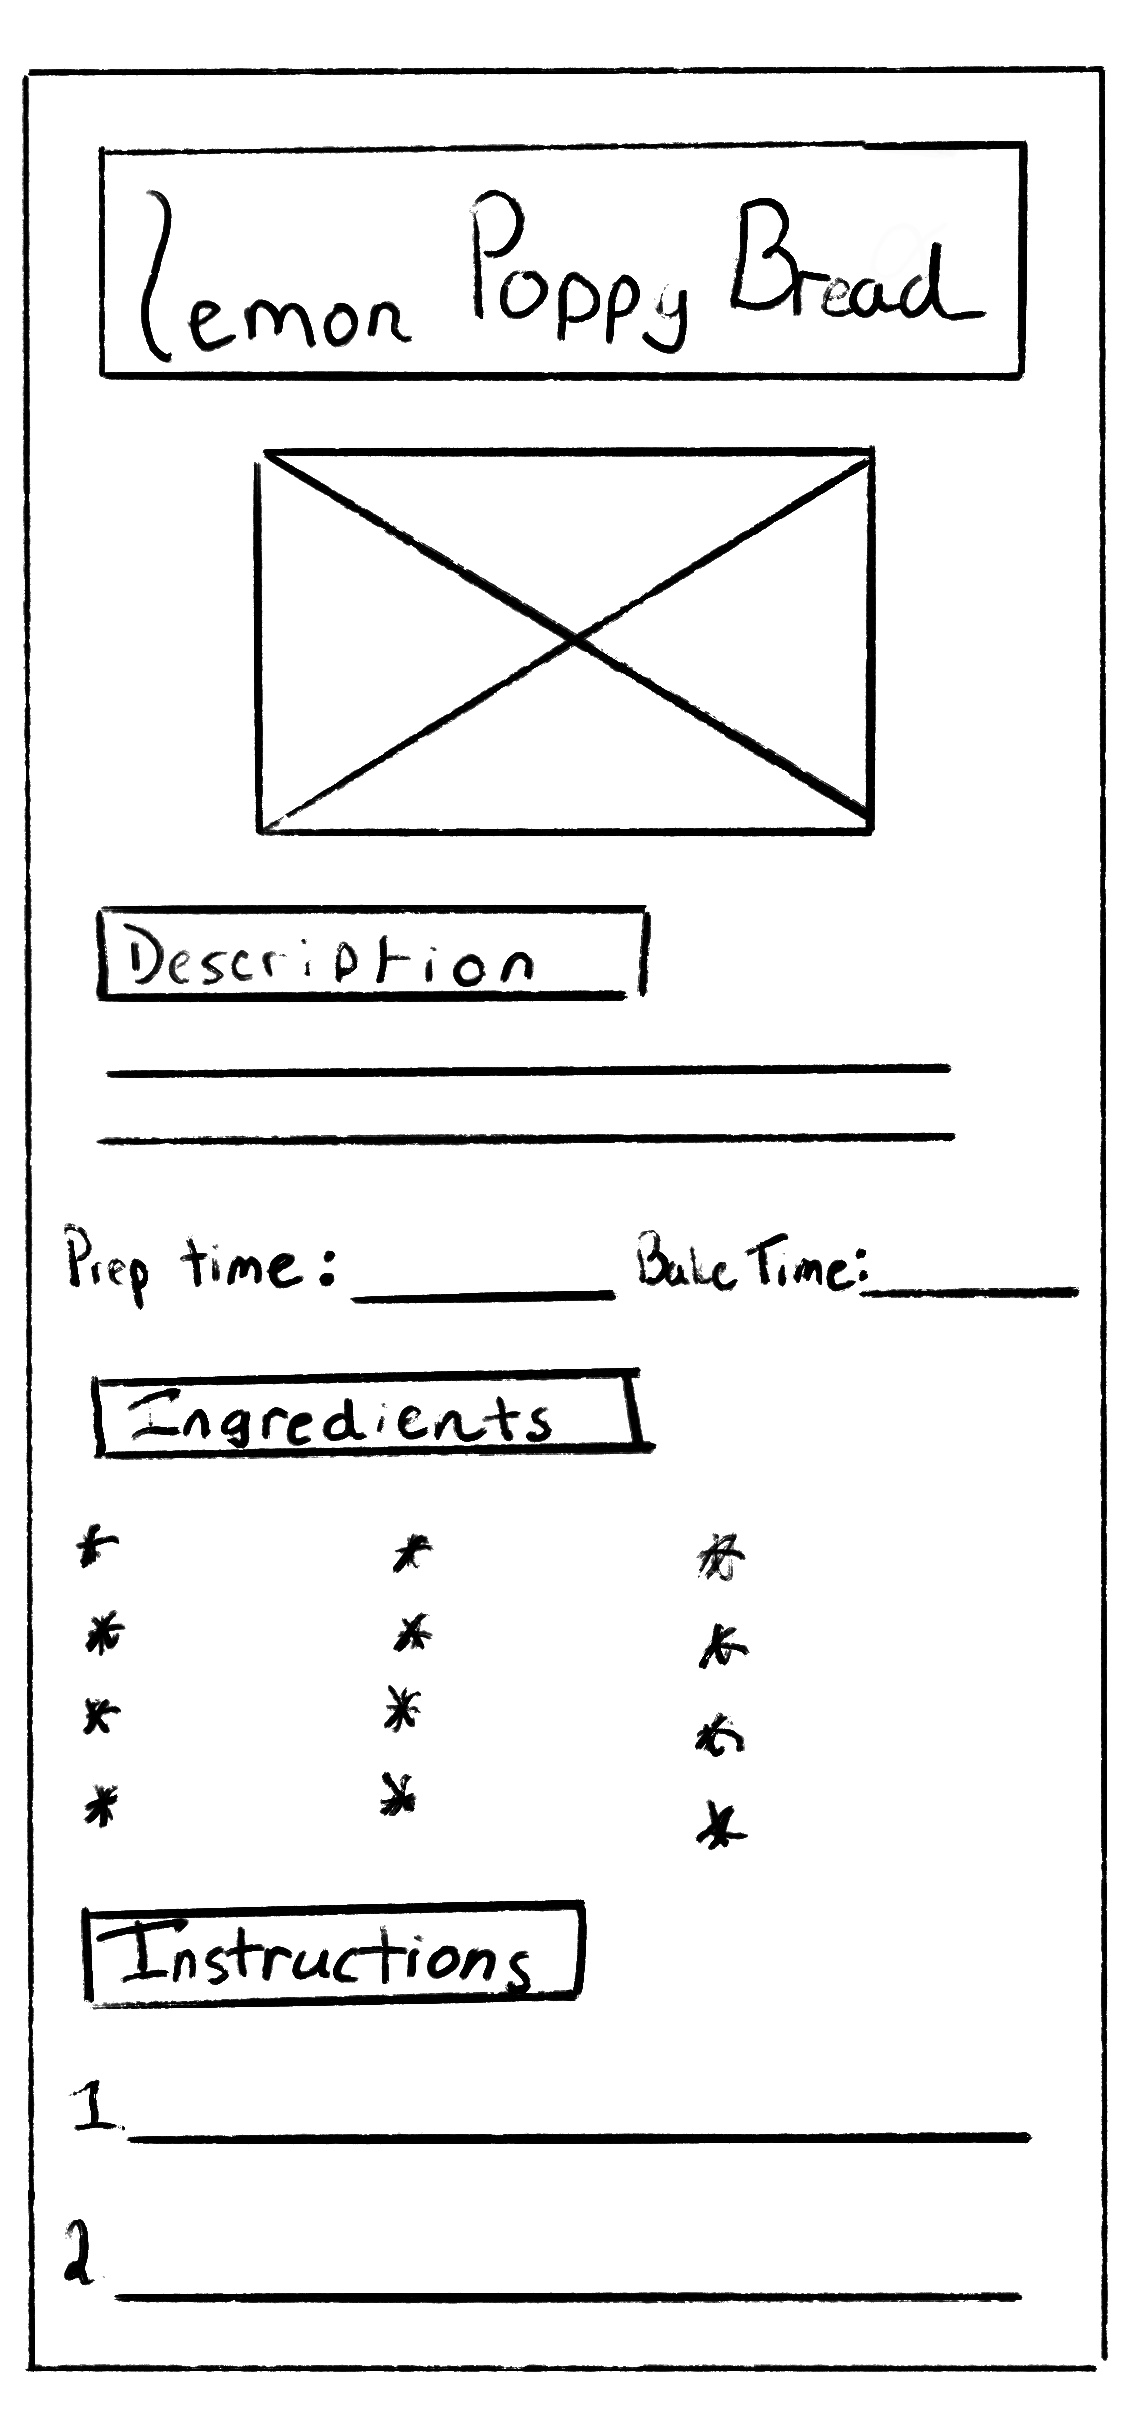 lemon Poppy Bread
Description
Prep time: Bake Time:
Ingredients
* * *
* * *
* * *
* * *
Instructions
1.
2.